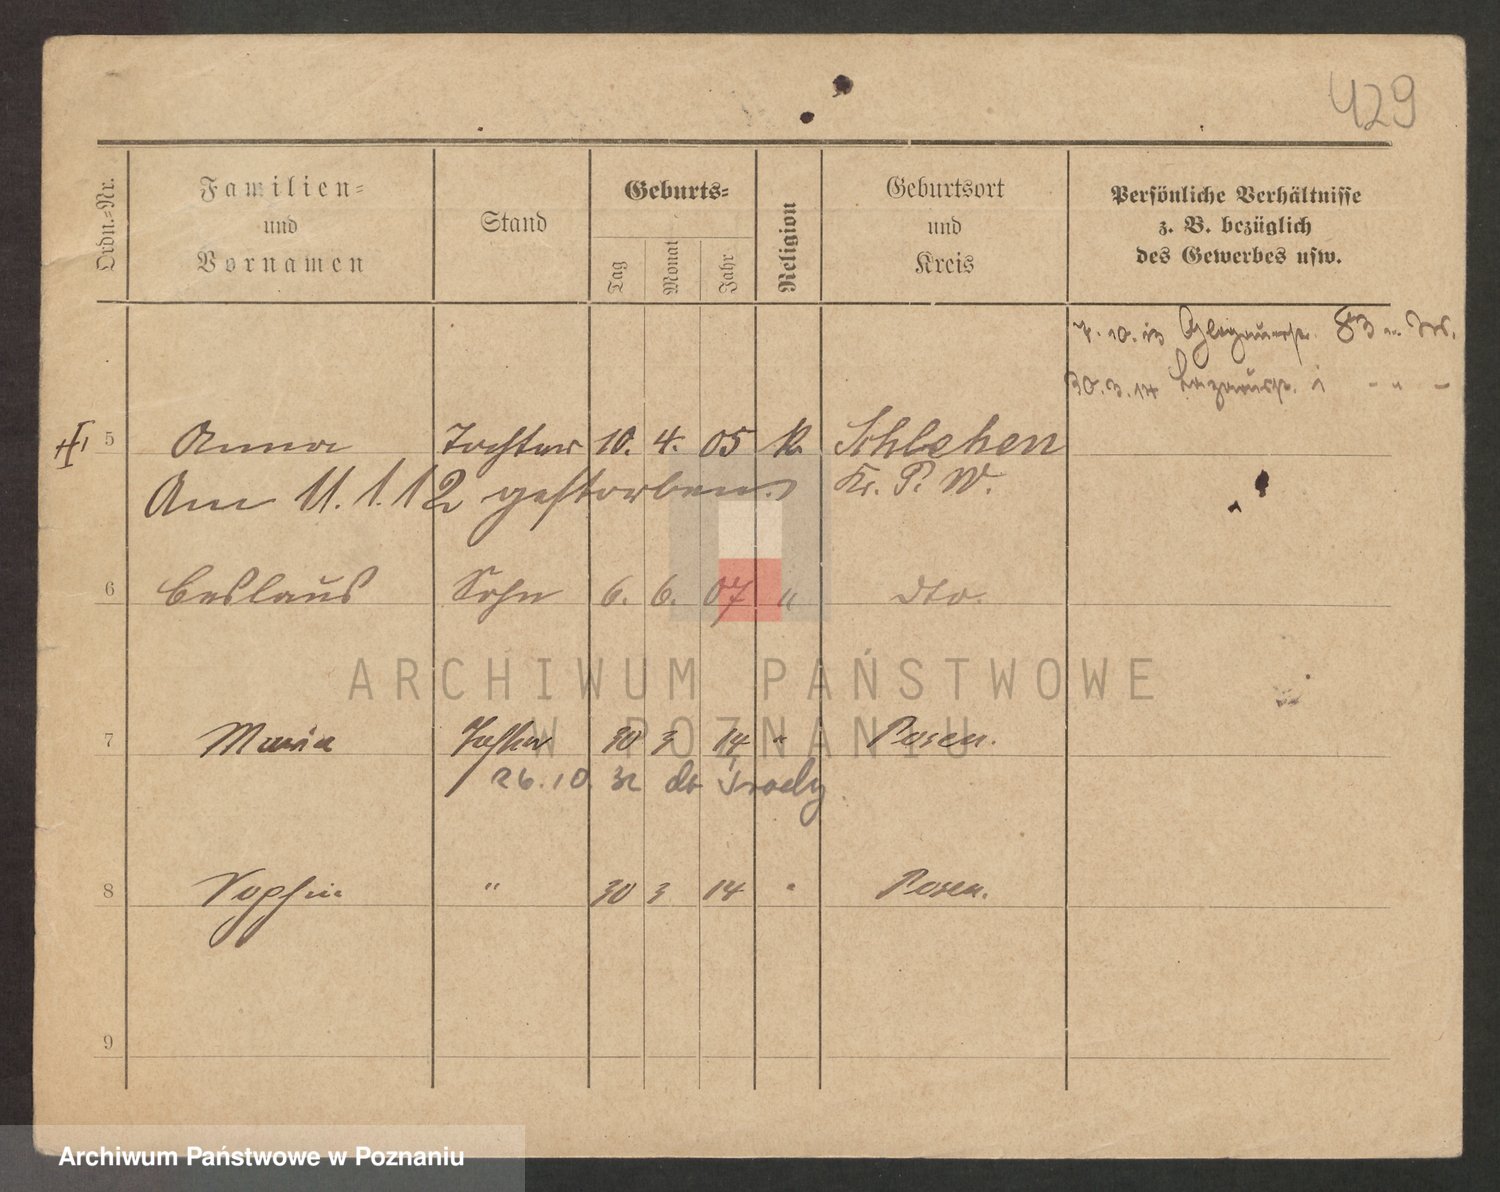 429
Ordn.-Nr.
Familien-
und
Vornamen
Stand
Geburts-
Tag
Monat
Jahr
Religion
Geburtsort
und
Kreis
Persönliche Verhältnisse
z. B. bezüglich
des Gewerbes usw.
7. 10. 13 Glogauerstr. 83
30. 3. 14
5 Anna Tochter 10. 4. 05 k. Schlehen
Am 11.1.12 gestorben. Kr. P. W.
6 Ceslaus Sohn 6. 6. 07 " dto.
ARCHIWUM PAŃSTWOWE
W POZNANIU
7 Maria Tochter 30 3 14 " Posen.
26.10. 32
8 Sophie " 30 3 14 " Posen.
9
Archiwum Państwowe w Poznaniu